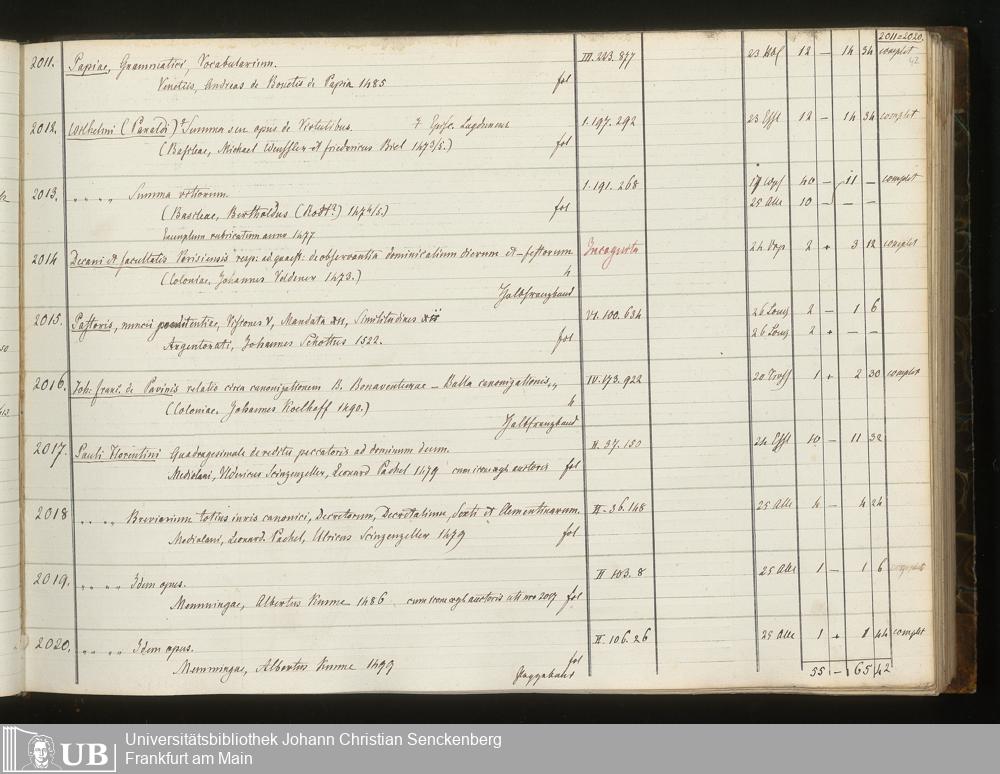 2011=2020.
42
2011. Papiae, Grammatici, Vocabularium. III. 223. 877 12 — 14 34 complet
Venetiis, Andreas de Bonetis de Papia 1485 fol
2012. Wilhelmi (Paraldi) Summa seu opus de Virtutibus. Episc. Lugdunens I. 197. 292 12 — 14 34 complet
(Basileae, Michael Wenssler et Friedericus Biel 1473/5.) fol
2013. " " " Summa vitiorum. I. 191. 268 40 — 11 — complet
(Basileae, Bertholdus 1474/5.) fol 25 Alle 10 — — —
Exemplum rubricatum anno 1477
2014 Decani et facultatis Parisiensis resp: ad quaest: de observantia dominicalium dierum et festorum Incognita 2 + 3 12 complet
(Coloniae, Johannes Veldener 1473.) 4
Halbfranzband
2015. Pastoris, nuncii poenitentiae, Visiones V, Mandata XII, Similitudines VI. 100. 634 2 — 1 6
Argentorati, Johannes Schottus 1522. fol 2 + — —
2016. Joh: franc. de Pavinis relatio circa canonizationem B. Bonaventurae — Bulla canonizationis " IV. 173. 922 1 + 2 30 complet
(Coloniae, Johannes Koelhoff 1490.) 4
Halbfranzband
2017. Pauli Florentini Quadragesimale de reditu peccatoris ad dominum deum. II. 37. 150 10 — 11 32
Mediolani, Uldericus Scinzenzeller, Leonard Pachel 1479 cum icone xyl auctoris fol
2018 " " " Breviarium totius iuris canonici, Decretorum, Decretalium, Sexti et Clementinarum. II. 36. 148 25 Alle 4 — 4 24
Mediolani, Leonard. Pachel, Ulricus Scinzenzeller 1479 fol
2019. " " " " Idem opus. II 103. 8 25 Alle 1 — 1 6
Memmingae, Albertus Kunne 1486 cum icone xyl auctoris uti nro 2017 fol
2020. " " " " Idem opus. II. 106. 26 25 Alle 1 + 1 44 complet
Memmingae, Albertus Kunne 1499 fol
Pappeband
55 — 65 42
UB Universitätsbibliothek Johann Christian Senckenberg
Frankfurt am Main